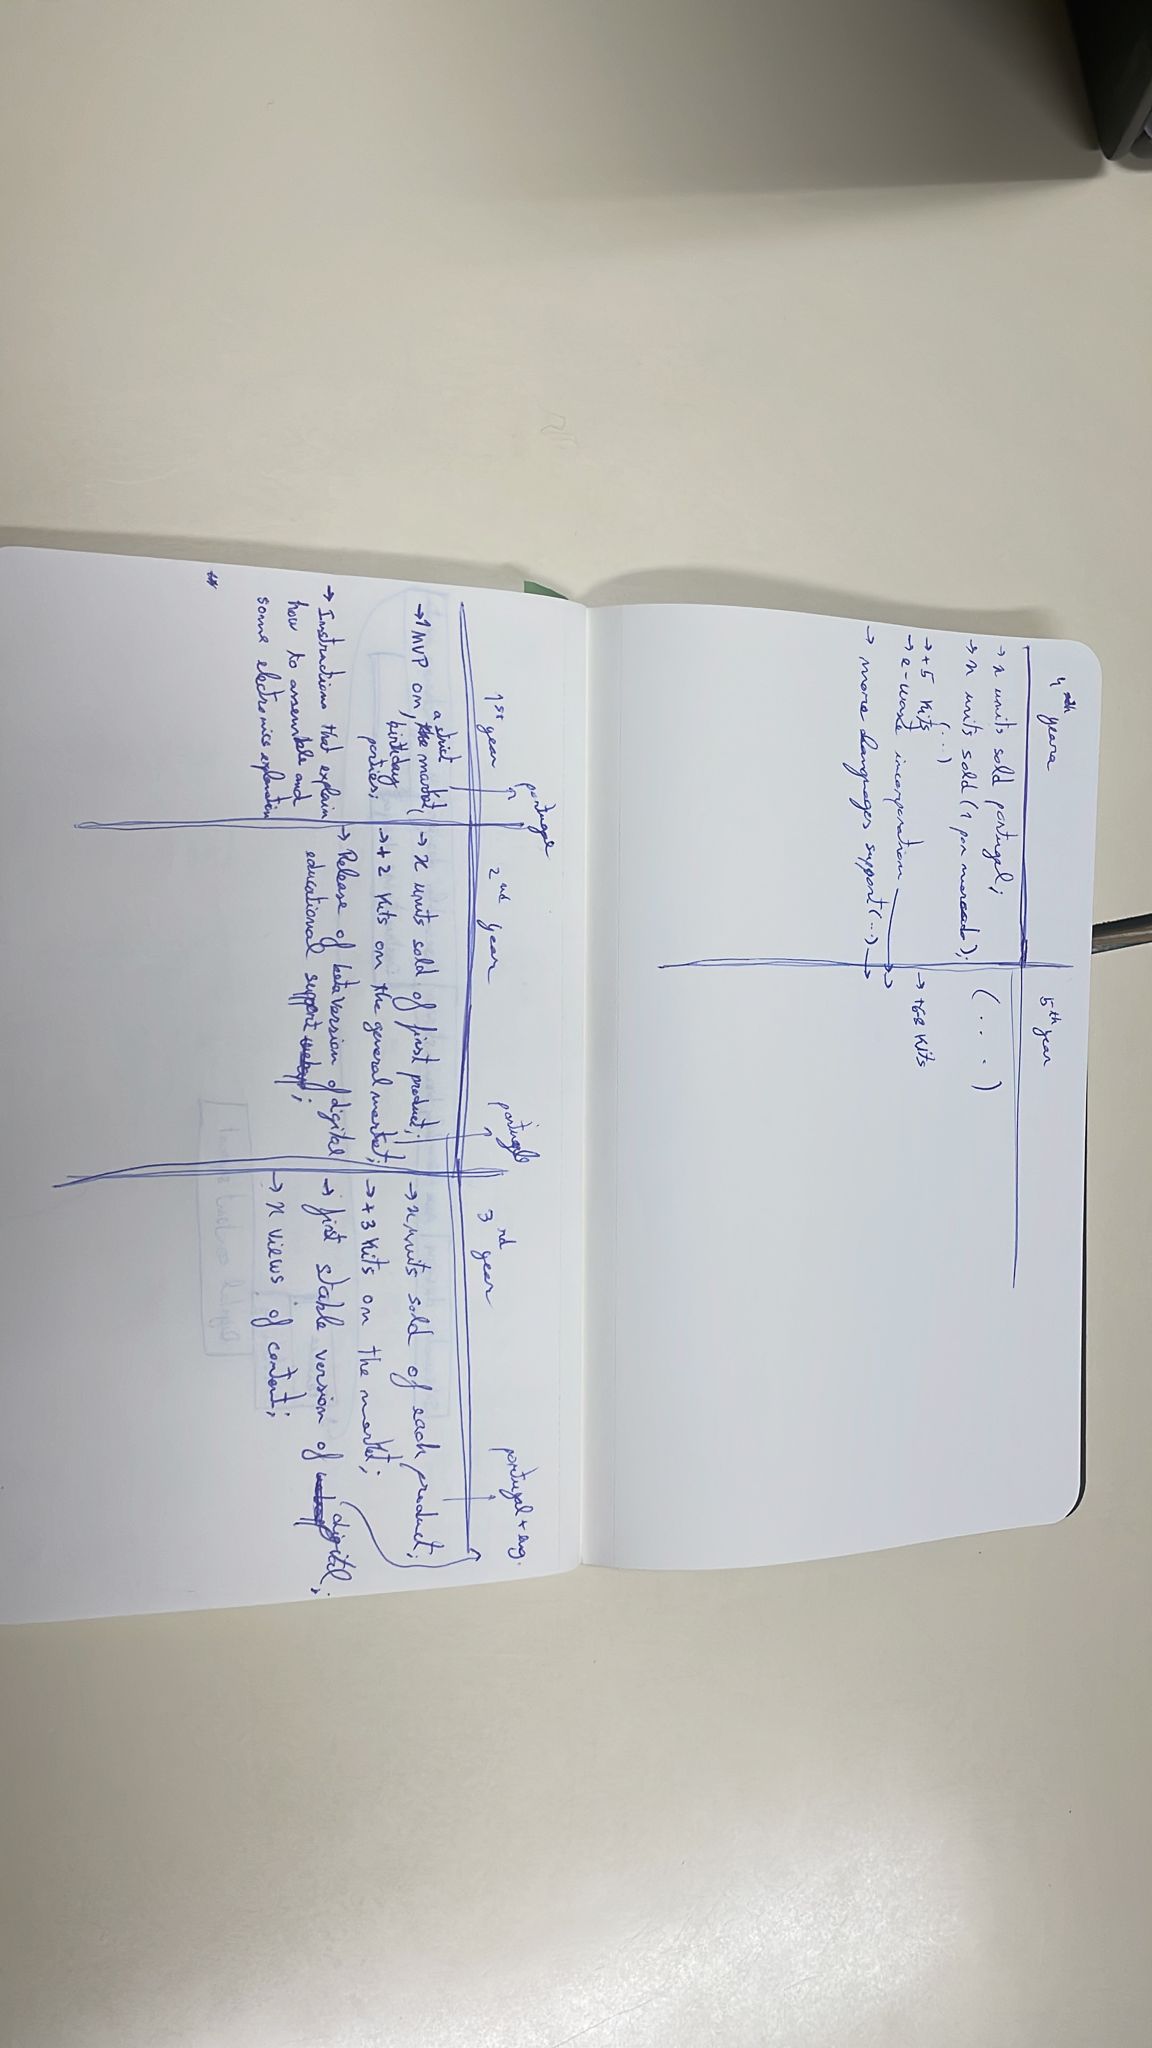 4th years
→ x units sold portugal;
→ x units sold (1 por mercado);
→ +5 Kits
(...)
→ e-waste incorporation →
→ more languages support (...) →
5th year
(....)
→ Kits
portugal
1st year
a strict
→ 1 MVP on market,
birthday
parties;
→ Instructions that explain
how to assemble and
some electronics explanation
portugal
2nd year
→ x units sold of first product;
→ +2 Kits on the general market;
→ Release of beta version of digital
educational support;
portugal + eng.
3rd year
→ x units sold of each product;
→ +3 Kits on the market;
→ first stable version of digital;
→ x views of content;